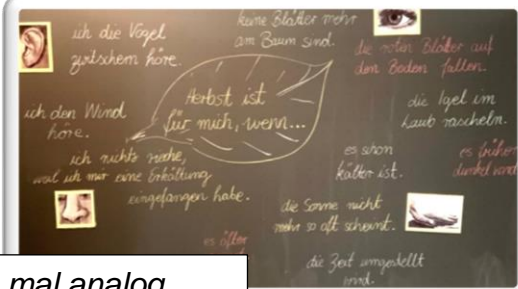 ich die Vögel
zwitschern höre.
keine Blätter mehr
am Baum sind.
die roten Blätter auf
den Boden fallen.
Herbst ist
für mich, wenn...
ich den Wind
höre.
die Igel im
Laub rascheln.
ich nichts rieche,
weil ich mir eine Erkältung
eingefangen habe.
es schon
kälter ist.
es früher
dunkel wird
die Sonne nicht
mehr so oft scheint.
es öfter
die Zeit umgestellt
wird.
mal analog